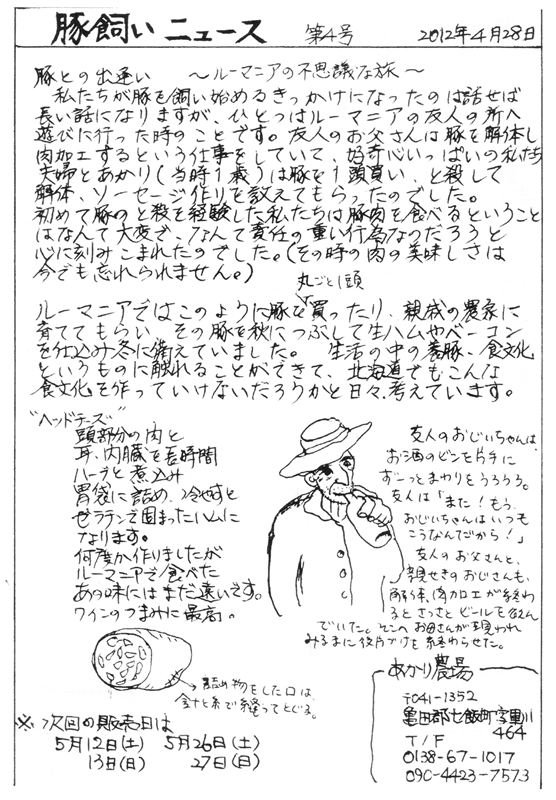 豚飼いニュース 第4号 2012年4月28日
豚との出逢い ～ルーマニアの不思議な旅～
私たちが豚を飼い始めるきっかけになったのは話せば
長い話になりますが、ひとつはルーマニアの友人の所へ
遊びに行った時のことです。友人のお父さんは豚を解体し
肉加工するという仕事をしていて、好奇心いっぱいの私たち
夫婦とあかり(当時1歳)は豚を1頭買い、と殺して
解体、ソーセージ作りを教えてもらったのでした。
初めて豚のと殺を経験した私たちは豚肉を食べるということ
はなんて大変で、なんて責任の重い行為なのだろうと
心に刻みこまれたのでした。(その時の肉の美味しさは
今でも忘れられません。)
丸ごと1頭
ルーマニアではこのように豚を買ったり、親戚の農家に
育ててもらい その豚を秋につぶして生ハムやベーコン
を仕込み冬に備えていました。 生活の中の養豚、食文化
というものに触れることができて、北海道でもこんな
食文化を作っていけないだろうかと日々考えています。
"ヘッドチーズ"
頭部分の肉と
耳、内臓を長時間
ハーブと煮込み
胃袋に詰め、冷やすと
ゼラチンで固まったハムに
なります。
何度か作りましたが
ルーマニアで食べた
あの味にはまだ遠いです。
ワインのつまみに最高。
友人のおじいちゃんは、
お酒のビンを片手に
ずーっとまわりをうろうろ。
友人は「また!もう、
おじいちゃんはいつも
こうなんだから!」
友人のお父さんと、
親せきのおじさんも、
解体、肉加工が終わ
るとさっさとビールを飲ん
でいた。そこへお母さんが現われ
みるまに後片づけを終わらせた。
詰め物をした口は、
針と糸で縫ってとじる。
※次回の販売日は
5月12日(土) 5月26日(土)
13日(日) 27日(日)
あかり農場
〒041-1352
亀田郡七飯町字軍川
464
T/F
0138-67-1017
090-4423-7573